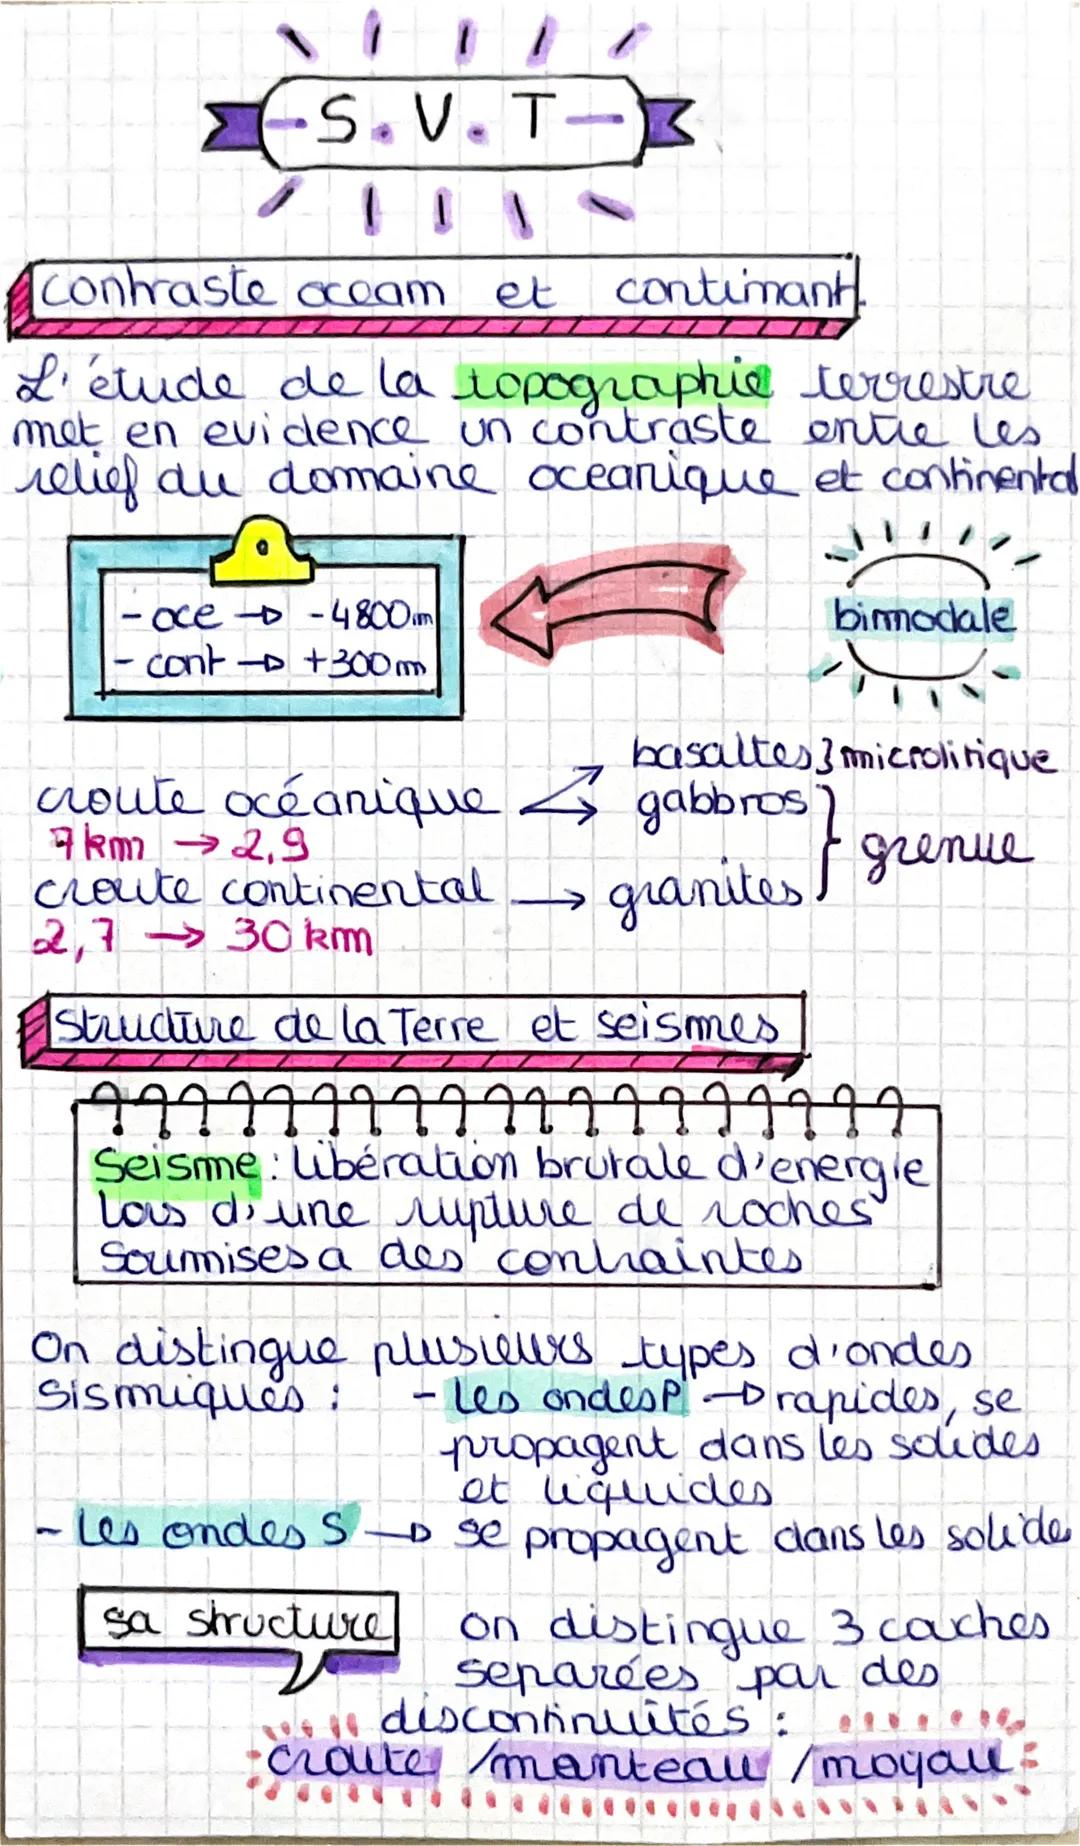 - S. V. T -
contraste ocean et continant.
L'étude de la topographie terrestre
met en evidence un contraste entre les
relief du domaine oceanique et continental
- oce → -4800m
- cont → +300m
bimodale
basaltes } microlitique
croute océanique → gabbros
7km → 2,9
grenue
croute continental → granites
2,7 → 30 km
structure de la Terre et seismes
Seisme : libération brutale d'energie
lors d'une rupture de roches
soumises a des contraintes
On distingue plusieurs types d'ondes
sismiques : - les ondes P → rapides, se
propagent dans les solides
et liquides
- les ondes S → se propagent dans les solide
sa structure
on distingue 3 couches
separées par des
discontinuités :
croute / manteau / noyau